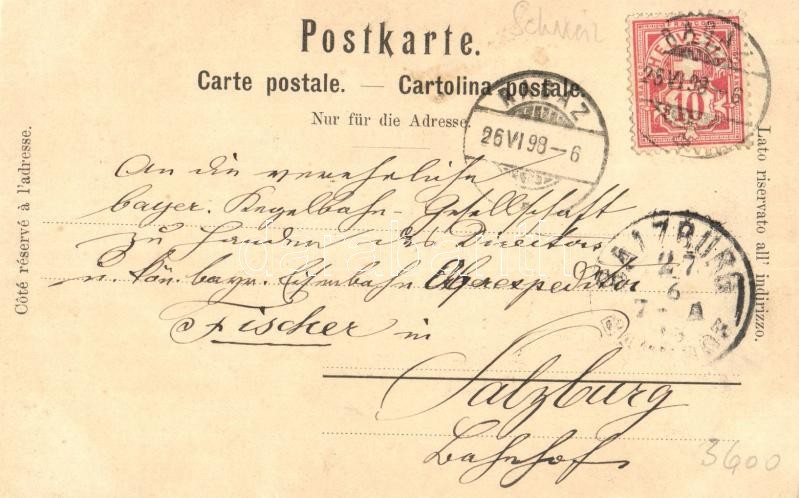 Schweiz
Postkarte.
Carte postale. — Cartolina postale.
Nur für die Adresse.
Côté réservé à l'adresse.
Lato riservato all' indirizzo.
HELVETIA
10
26 VI 98-6
26 VI 98-6
An die verehrliche
bayer. Kegelbahn-Gesellschaft
zu Handen des Directors
u. kön. bayr. Eisenbahn Oberexpeditor
Fischer in
Salzburg
Bahnhof
SALZBURG
27
6
7 A
3600